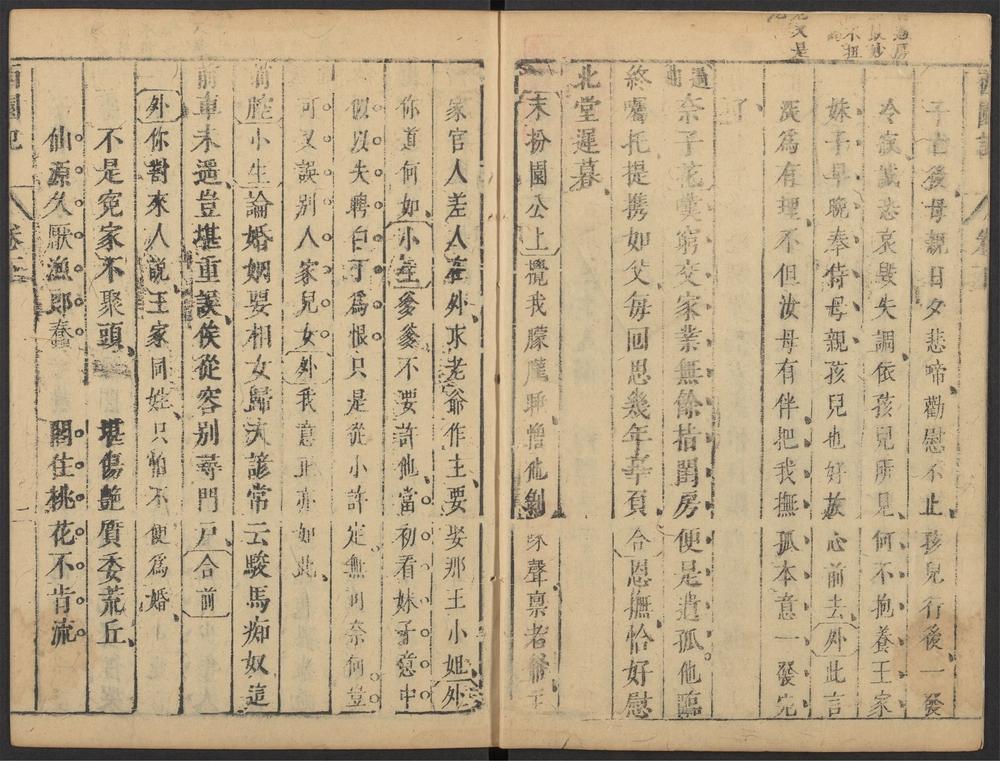 子亡後母親日夕悲啼勸慰不止孩兒行後一發
冷寂誠恐哀毀失調依孩兒所見何不抱養王家
妹子早晚奉侍母親孩兒也好放心前去外此言
深為有理不但汝母有伴把我撫孤本意一發完
了
奈子花嘆窮交家業無餘拮閨房便是遺孤他臨
終囑托提携如父每回思幾年辜負合恩撫恰好慰
北堂遲暮
末扮園公上攪我朦朧睡憎他剝啄聲稟老爺王
家官人差人在外求老爺作主要娶那王小姐外
你道何如小生爹爹不要許他當初看妹子意中
似以失聘白丁為恨只是從小許定無可奈何豈
可又誤别人家兒女外我意正亦如此
前腔小生論婚姻娶相女歸大諺常云駿馬痴奴這
前車未遠豈堪重誤俟從容别尋門戶合前
外你對來人說王家同姓只怕不便為婚
不是寃家不聚頭 堪傷艶質委荒丘
仙源久厭漁郎蠢 閣住桃花不肯流